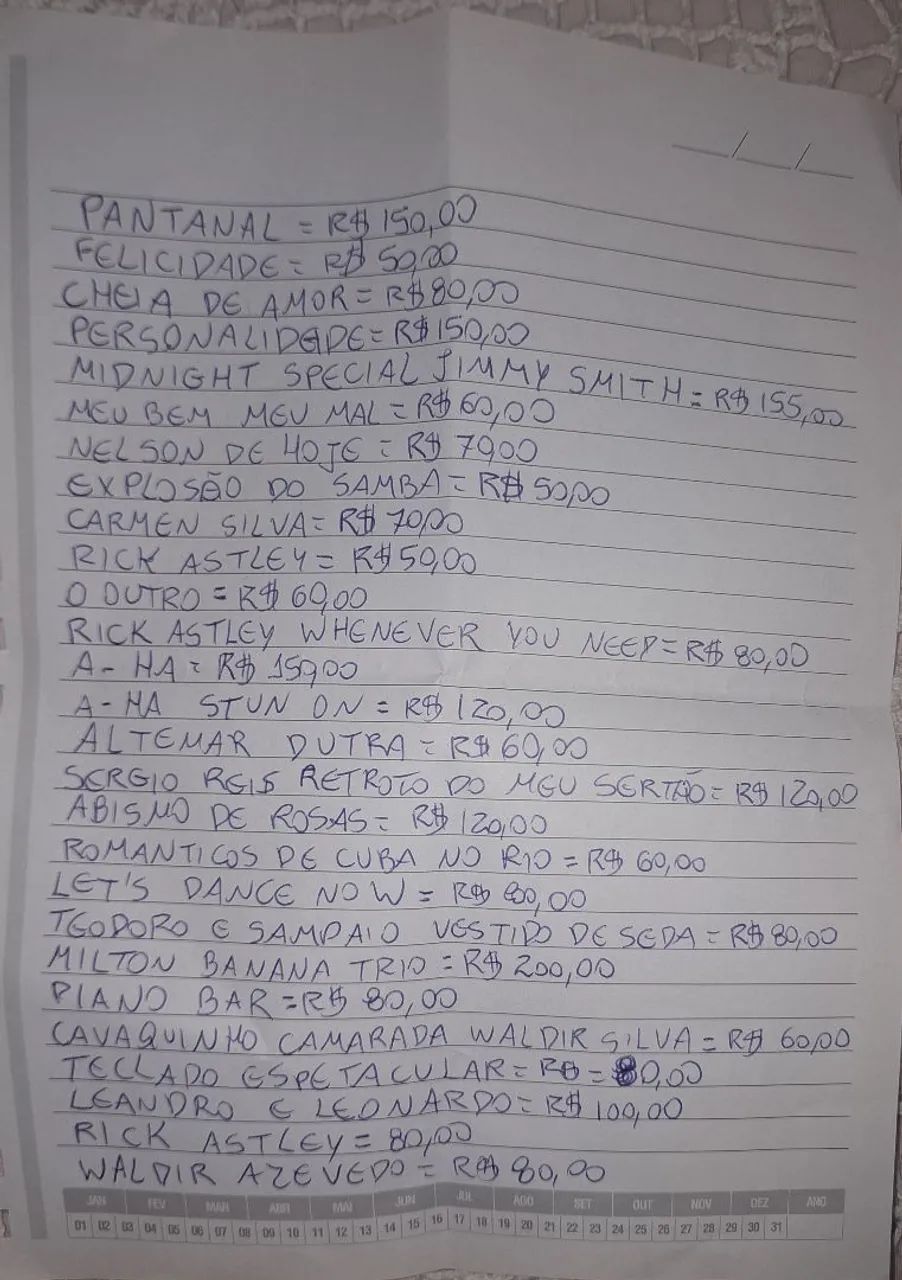 PANTANAL = R$ 150,00
FELICIDADE = R$ 50,00
CHEIA DE AMOR = R$ 80,00
PERSONALIDADE = R$ 150,00
MIDNIGHT SPECIAL JIMMY SMITH = R$ 155,00
MEU BEM MEU MAL = R$ 60,00
NELSON DE HOJE = R$ 70,00
EXPLOSÃO DO SAMBA = R$ 50,00
CARMEN SILVA = R$ 70,00
RICK ASTLEY = R$ 50,00
O OUTRO = R$ 60,00
RICK ASTLEY WHENEVER YOU NEED = R$ 80,00
A-HA = R$ 150,00
A-HA STUN ON = R$ 120,00
ALTEMAR DUTRA = R$ 60,00
SERGIO REIS RETROTO DO MEU SERTÃO = R$ 120,00
ABISMO DE ROSAS = R$ 120,00
ROMANTICOS DE CUBA NO RIO = R$ 60,00
LET'S DANCE NOW = R$ 80,00
TEODORO E SAMPAIO VESTIDO DE SEDA = R$ 80,00
MILTON BANANA TRIO = R$ 200,00
PIANO BAR = R$ 80,00
CAVAQUINHO CAMARADA WALDIR SILVA = R$ 60,00
TECLADO ESPETACULAR = R$ = 80,00
LEANDRO E LEONARDO = R$ 100,00
RICK ASTLEY = 80,00
WALDIR AZEVEDO = R$ 80,00
JAN FEV MAR ABR MAI JUN JUL AGO SET OUT NOV DEZ ANO
01 02 03 04 05 06 07 08 09 10 11 12 13 14 15 16 17 18 19 20 21 22 23 24 25 26 27 28 29 30 31